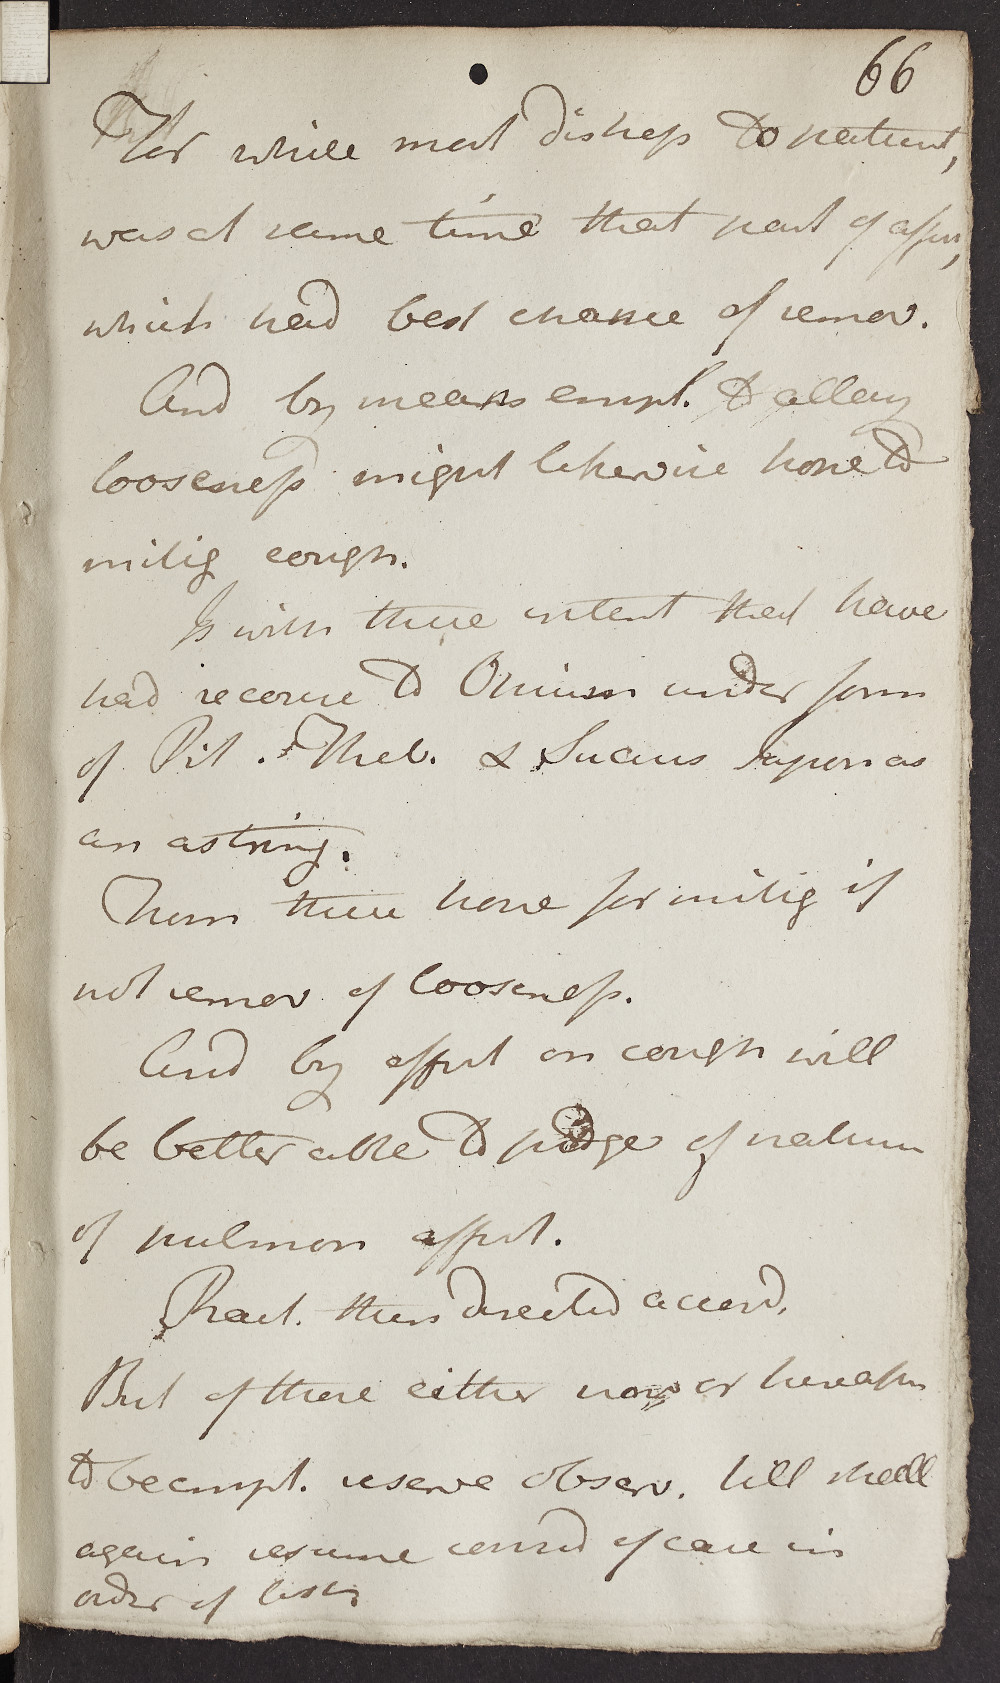 66
For while most distress to patient,
was at same time that part of affn,
which had best chance of remov.
And by means empl. to allay
looseness might likewise hope to
mitig cough.
Is with these intent that have
had recourse to Opium under form
of Pil. Theb. & Succus Japon as
an astring.
From these hope for mitig if
not remov of looseness.
And by effect on cough will
be better able to judge of nature
of pulmon affect.
Pract. thus directed accord.
But of these either now or hereafter
to be empl. reserve observ. till shall
again resume consid of case in
order of list